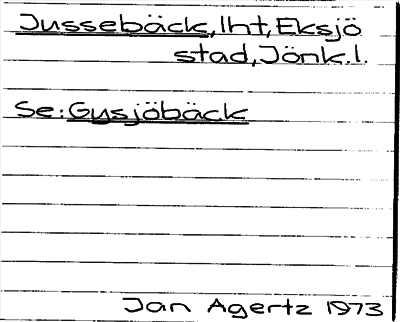 Jussebäck, lht, Eksjö
stad, Jönk.l.
Se: Gysjöbäck
Jan Agertz 1973